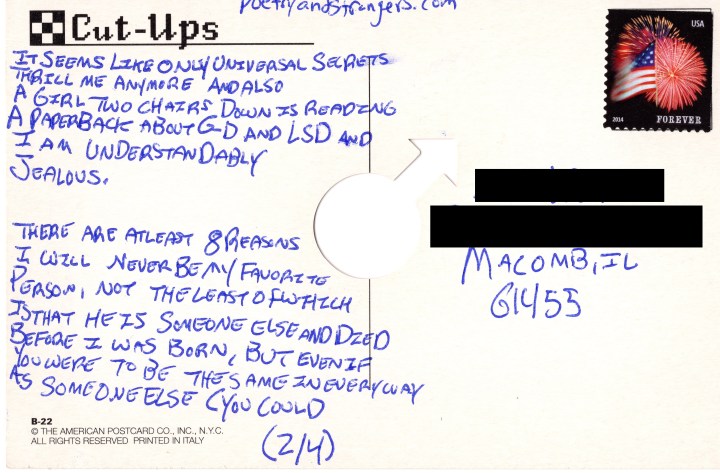 poetryandstrangers.com
Cut-Ups
USA
2014 FOREVER
IT SEEMS LIKE ONLY UNIVERSAL SECRETS
THRILL ME ANYMORE AND ALSO
A GIRL TWO CHAIRS DOWN IS READING
A PAPERBACK ABOUT G-D AND LSD AND
I AM UNDERSTANDABLY
JEALOUS.
THERE ARE ATLEAST 8 REASONS
I WILL NEVER BE MY FAVORITE
PERSON, NOT THE LEAST OF WHICH
IS THAT HE IS SOMEONE ELSE AND DIED
BEFORE I WAS BORN, BUT EVEN IF
YOU WERE TO BE THE SAME IN EVERY WAY
AS SOMEONE ELSE (YOU COULD
(2/4)
MACOMB, IL
61455
B-22
© THE AMERICAN POSTCARD CO., INC., N.Y.C.
ALL RIGHTS RESERVED PRINTED IN ITALY